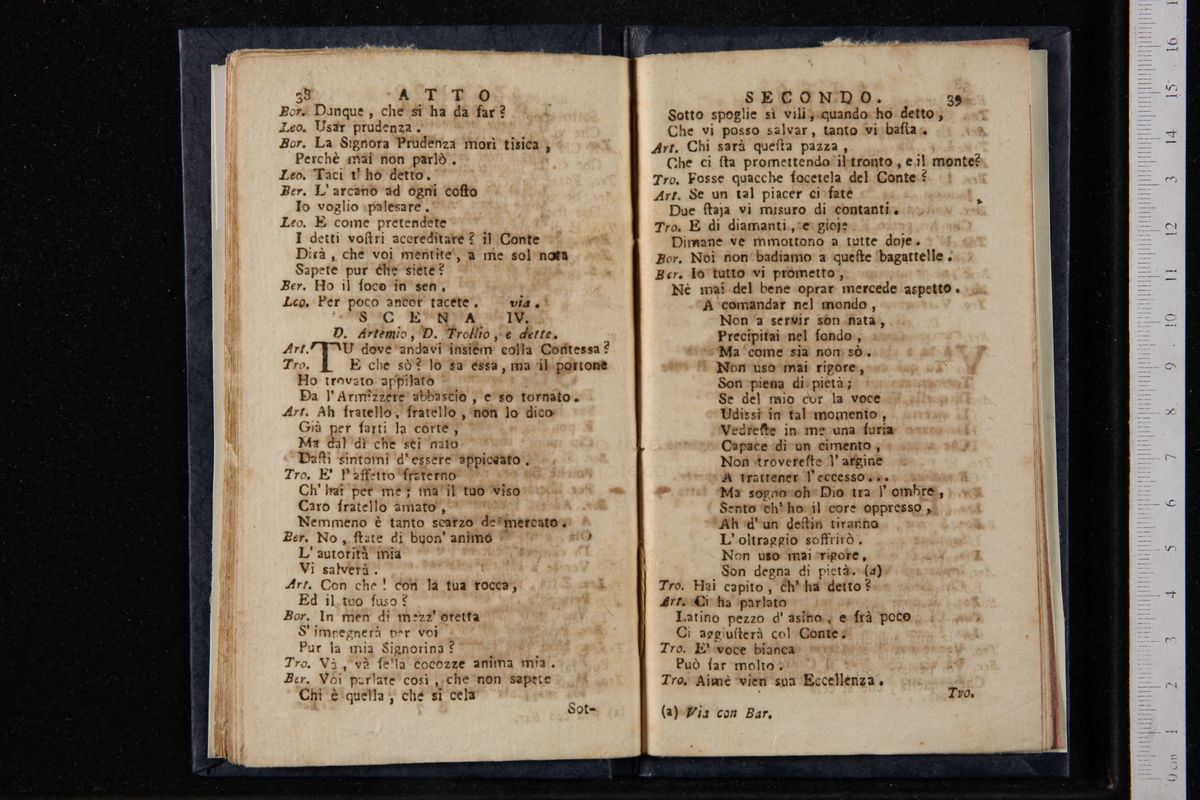 38 ATTO
Bor. Dunque, che si ha da far?
Leo. Usar prudenza.
Bor. La Signora Prudenza morì tisica,
Perchè mai non parlò.
Leo. Taci t' ho detto.
Ber. L' arcano ad ogni coſto
Io voglio palesare.
Leo. E come pretendete
I detti voſtri accreditare? il Conte
Dirà, che voi mentite, a me sol nota
Sapete pur che siete?
Ber. Ho il foco in sen.
Leo. Per poco ancor tacete. via.
SCENA IV.
D. Artemio, D. Trollio, e dette.
Art. TU dove andavi insiem colla Contessa?
Tro. E che sò? lo sa essa, ma il portone
Ho trovato appilato
Da l' Armizzere abbascio, e so tornato.
Art. Ah fratello, fratello, non lo dico
Già per farti la corte,
Ma dal dì che sei nato
Daſti sintomi d' essere appiccato.
Tro. E' l' affetto fraterno
Ch' hai per me; ma il tuo viso
Caro fratello amato,
Nemmeno è tanto scarzo de mercato.
Ber. No, ſtate di buon' animo
L' autorità mia
Vi salverà.
Art. Con che! con la tua rocca,
Ed il tuo fuso?
Bor. In men di mezz' oretta
S' impegnerà per voi
Pur la mia Signorina?
Tro. Và, và fella cocozze anima mia.
Ber. Voi parlate così, che non sapete
Chi è quella, che si cela
Sot-
SECONDO. 39
Sotto spoglie sì vili, quando ho detto,
Che vi posso salvar, tanto vi baſta.
Art. Chi sarà queſta pazza,
Che ci ſta promettendo il tronto, e il monte?
Tro. Fosse quacche focetela del Conte?
Art. Se un tal piacer ci fate
Due ſtaja vi misuro di contanti.
Tro. E di diamanti, e gioje
Dimane ve mmottono a tutte doje.
Bor. Noi non badiamo a queſte bagattelle.
Ber. Io tutto vi prometto,
Nè mai del bene oprar mercede aspetto.
A comandar nel mondo,
Non a servir son nata,
Precipitai nel fondo,
Ma come sia non sò.
Non uso mai rigore,
Son piena di pietà;
Se del mio cor la voce
Udissi in tal momento,
Vedreſte in me una furia
Capace di un cimento,
Non trovereſte l' argine
A trattener l' eccesso...
Ma sogno oh Dio tra l' ombre,
Sento ch' ho il core oppresso,
Ah d' un deſtin tiranno
L' oltraggio soffrirò.
Non uso mai rigore,
Son degna di pietà. (a)
Tro. Hai capito, ch' ha detto?
Art. Ci ha parlato
Latino pezzo d' asino, e frà poco
Ci aggiuſterà col Conte.
Tro. E' voce bianca
Può far molto.
Tro. Aimè vien sua Eccellenza.
Tro.
(a) Via con Bar.